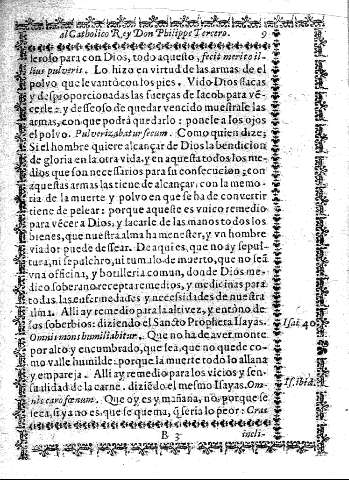 al Catholico Rey Don Philippe Tercero. 9
leroso para con Dios, todo aquesto, fecit merito il-
lius pulveris. Lo hizo en virtud de las armas de el
polvo que levantò con los pies. Vido Dios flacas
y desproporcionadas las fuerças de Iacob para vē-
cerle: y desseoso de quedar vencido muestrale las
armas, con que podrà quedarlo: ponele a los ojos
el polvo. Pulverizabatur secum. Como quien dize;
Si el hombre quiere alcançar de Dios la bendicion
de gloria en la otra vida, y en aquesta todos los me-
dios que son necessarios para su consecucion; con
aquestas armas las tiene de alcançar, con la memo-
ria de la muerte y polvo en que se ha de convertir
tiene de pelear: porque aqueste es vnico remedio
para vēcer a Dios, y sacarle de las manos todos los
bienes, que nuestra alma ha menester, y vn hombre
viador puede dessear. De aqui es, que no ay sepul-
tura, ni sepulchro, ni tumulo de muerto, que no seā
vna officina, y botilleria comun, donde Dios me-
dico soberano recepta remedios, y medicinas para
todas las enfermedades y necessidades de nuestra
alma. Alli ay remedio para la altivez, y entono de
los soberbios: diziendo el Sancto Propheta Isayas.
Isai 40.
Omnis mons humiliabitur. Que no ha de aver monte
por alto y encumbado, que sea, que no quede co-
mo valle humilde: porque la muerte todo lo allana
y empareja. Alli ay remedio para los vicios y sen-
sualidad de la carne. diziēdo el mesmo Isayas. Om-
Is. ibid.
nis caro fœnum. Que oy es y mañana, no, porque se
seca, si ya no es, que se quema, q̄ seria lo peor: Cras
B 3 incli-